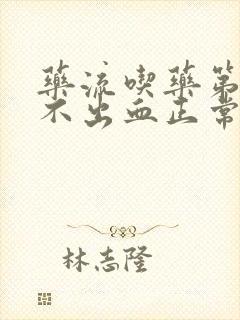 藥流喫藥第
不出血正常
林志隆